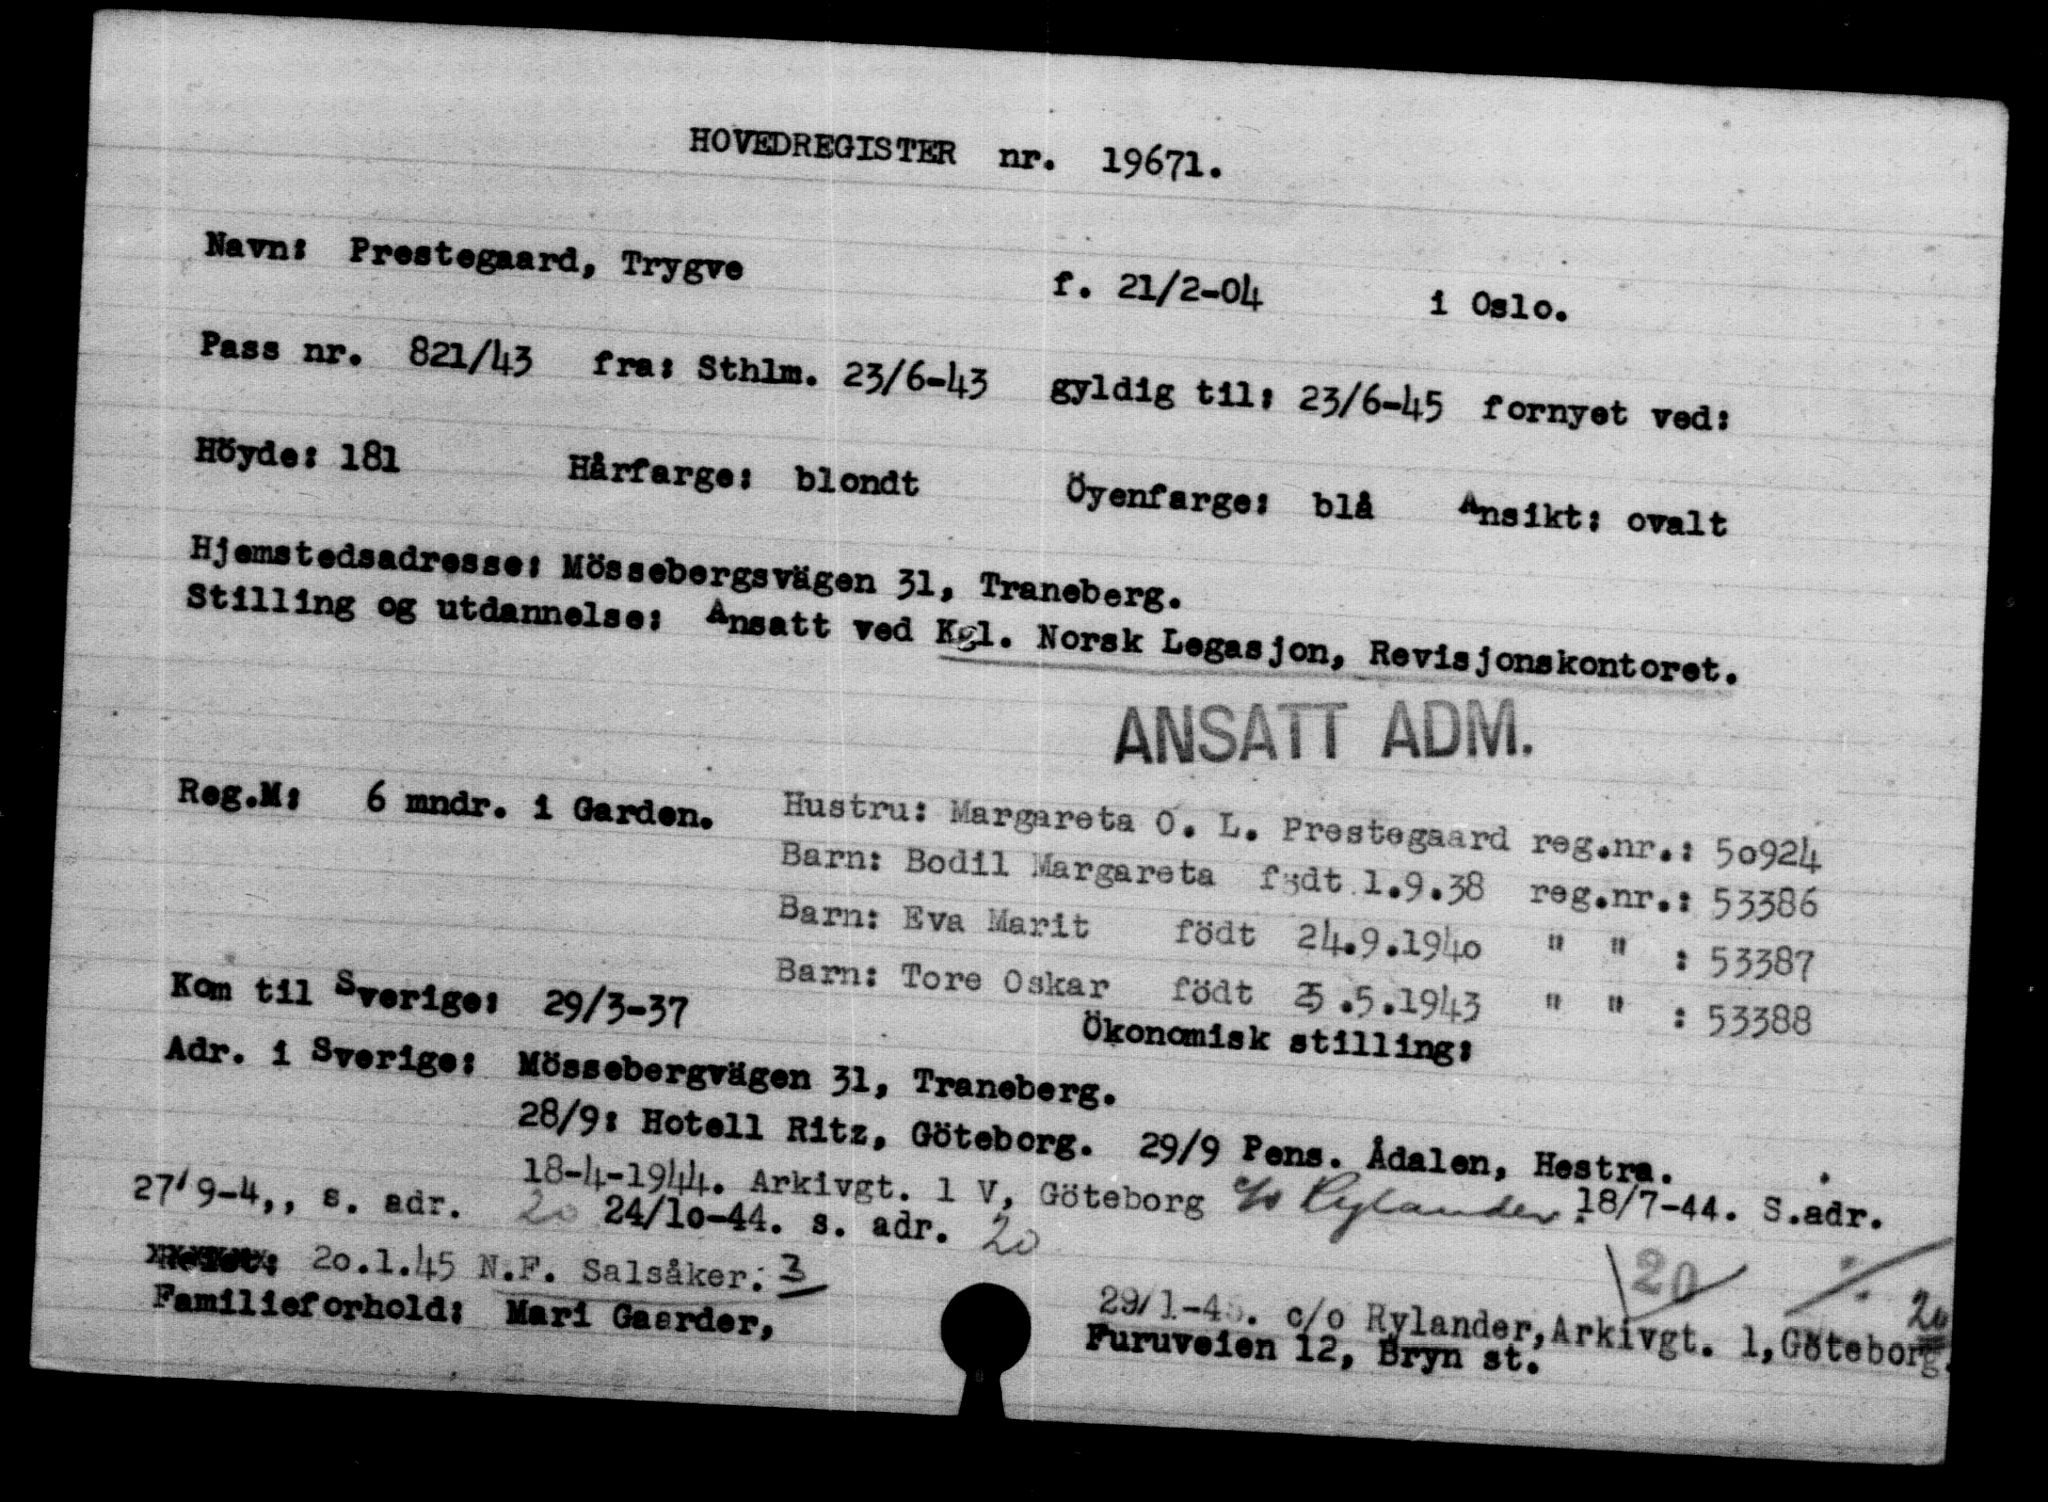 HOVEDREGISTER nr. 19671.
Navn: Prestegaard, Trygve f. 21/2-04 i Oslo.
Pass nr. 821/43 fra: Sthlm. 23/6-43 gyldig til: 23/6-45 fornyet ved:
Höyde: 181 Hårfarge: blondt Öyenfarge: blå Ansikt: ovalt
Hjemstedsadresse: Mössebergsvägen 31, Traneberg.
Stilling og utdannelse: Ansatt ved Kgl. Norsk Legasjon, Revisjonskontoret.
ANSATT ADM.
Reg.M: 6 mndr. i Garden. Hustru: Margareta O. L. Prestegaard reg.nr.: 50924
Barn: Bodil Margareta födt 1.9.38 reg.nr.: 53386
Barn: Eva Marit födt 24.9.1940 " " : 53387
Barn: Tore Oskar födt 25.5.1943 " " : 53388
Kom til Sverige: 29/3-37 Ökonomisk stilling:
Adr. i Sverige: Mössebergvägen 31, Traneberg.
28/9: Hotell Ritz, Göteborg. 29/9 Pens. Ådalen, Hestra.
18-4-1944. Arkivgt. 1 V, Göteborg c/o Rylander. 18/7-44. S.adr.
27/9-4,, s. adr. 20 24/10-44. s. adr. 20
20.1.45 N.F. Salsåker: 3 20 %
29/1-45. c/o Rylander, Arkivgt. 1, Göteborg. 20
Familieforhold: Mari Gaarder, Furuveien 12, Bryn st.